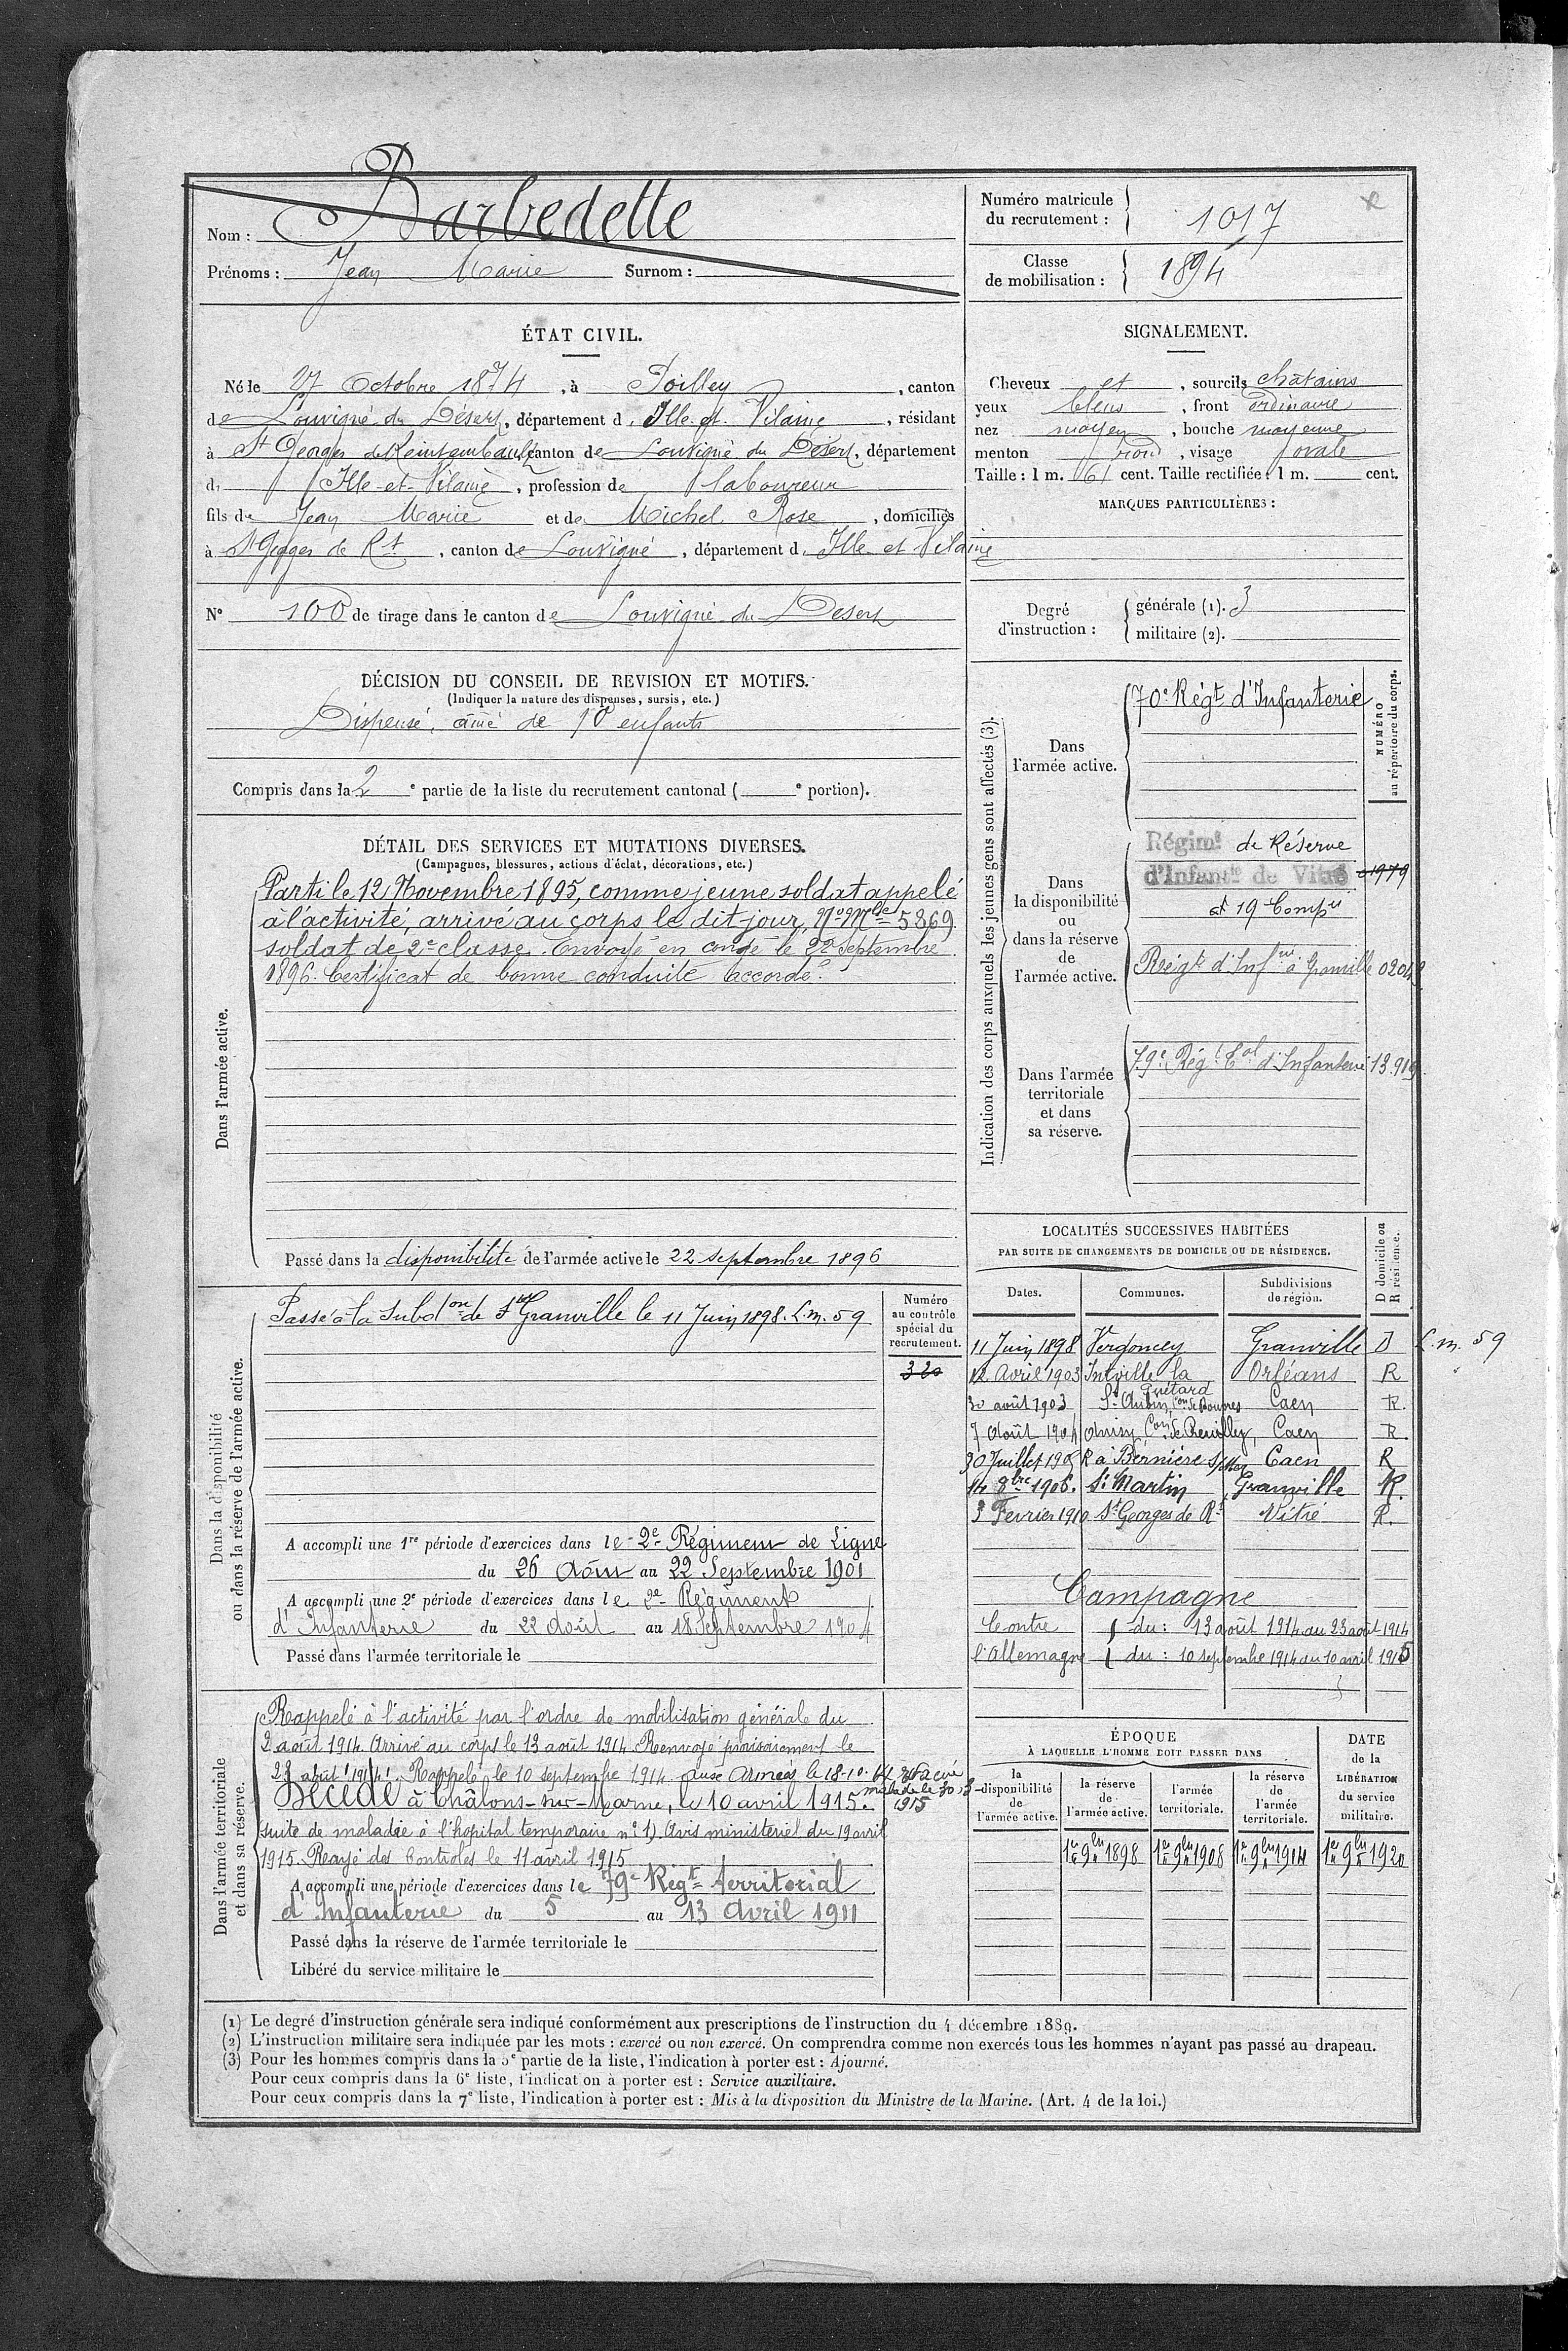 Nom : Barbedette
Prénoms : Jean Marie Surnom :
Numéro matricule du recrutement : 1017
Classe de mobilisation : 1894
ÉTAT CIVIL.
Né le 27 Octobre 1874, à Poilley, canton
de Louvigné du Désert, département d. Ille-et-Vilaine, résidant
à St Georges de Reintembault, canton de Louvigné du Désert, département
d. Ille-et-Vilaine, profession de laboureur
fils de Jean Marie et de Michel Rose, domiciliés
à St Georges de Rt, canton de Louvigné, département d. Ille et Vilaine
N° 100 de tirage dans le canton de Louvigné du Désert
SIGNALEMENT.
Cheveux et, sourcils châtains
yeux bleus, front ordinaire
nez moyen, bouche moyenne
menton rond, visage ovale
Taille : 1 m. 61 cent. Taille rectifiée : 1 m. cent.
MARQUES PARTICULIÈRES :
Degré d'instruction :
générale (1). 3
militaire (2).
DÉCISION DU CONSEIL DE REVISION ET MOTIFS.
(Indiquer la nature des dispenses, sursis, etc.)
Dispensé, aîné de 10 enfants
Compris dans la 2e partie de la liste du recrutement cantonal ( e portion).
DÉTAIL DES SERVICES ET MUTATIONS DIVERSES.
(Campagnes, blessures, actions d'éclat, décorations, etc.)
Dans l'armée active.
Parti le 12 Novembre 1895, comme jeune soldat appelé
à l'activité, arrivé au corps le dit jour, No Mle 5869
soldat de 2e classe. Envoyé en congé le 22 Septembre
1896. Certificat de bonne conduite accordé.
Passé dans la disponibilité de l'armée active le 22 septembre 1896
Indication des corps auxquels les jeunes gens sont affectés (3).
NUMÉRO au répertoire du corps.
Dans l'armée active.
70e Régt d'Infanterie
Dans la disponibilité ou dans la réserve de l'armée active.
Régimt de Réserve
d'Infantie de Vitré 1979
et 19 Compie
Régt d'Infie à Granville
Dans l'armée territoriale et dans sa réserve.
79e Régt Tal d'Infanterie 13.919
Dans la disponibilité ou dans la réserve de l'armée active.
Passé à la Subdon de Granville le 11 Juin 1898. L.m. 59
Numéro au contrôle spécial du recrutement.
320
A accompli une 1re période d'exercices dans le 2e Régiment de Ligne
du 26 Août au 22 Septembre 1901
A accompli une 2e période d'exercices dans le 2e Régiment
d'Infanterie du 22 Août au 18 Septembre 1904
Passé dans l'armée territoriale le
LOCALITÉS SUCCESSIVES HABITÉES
PAR SUITE DE CHANGEMENTS DE DOMICILE OU DE RÉSIDENCE.
D domicile ou R résidence.
Dates. Communes. Subdivisions de région.
11 Juin 1898 Vergoncey Granville D L.m. 59
12 Avril 1903 Intville la Guétard Orléans R
30 août 1903 St Aubin, Caen R.
7 Août 1904 Anisy Con de Creuilley, Caen R
30 Juillet 190 R à Bernière s/Mer Caen R
14 8bre 1906. St Martin Granville R.
3 Fevrier 1910 St Georges de Rt Vitré R.
Campagne
Contre du : 13 août 1914 au 23 août 1914
l'Allemagne du : 10 septembre 1914 au 10 avril 1915
Dans l'armée territoriale et dans sa réserve.
Rappelé à l'activité par l'ordre de mobilisation générale du
2 août 1914. Arrivé au corps le 13 août 1914. Renvoyé provisoirement le
23 août 1914. Rappelé le 10 septembre 1914 aux Armées le 18-10-14 Evacué
malade le 30.3
1915
Décédé à Châlons-sur-Marne, le 10 avril 1915.
suite de maladie à l'hopital temporaire n° 1) Avis ministériel du 19 avril
1915. Rayé des Controles le 11 avril 1915
A accompli une période d'exercices dans le 79e Régt territorial
d'Infanterie du 5 au 13 Avril 1911
Passé dans la réserve de l'armée territoriale le
Libéré du service militaire le
ÉPOQUE
À LAQUELLE L'HOMME DOIT PASSER DANS
la disponibilité de l'armée active.
la réserve de l'armée active.
l'armée territoriale.
la réserve de l'armée territoriale.
DATE de la LIBÉRATION du service militaire.
1er 9bre 1898 1er 9bre 1908 1er 9bre 1914 1er 9bre 1920
(1) Le degré d'instruction générale sera indiqué conformément aux prescriptions de l'instruction du 4 décembre 1889.
(2) L'instruction militaire sera indiquée par les mots : exercé ou non exercé. On comprendra comme non exercés tous les hommes n'ayant pas passé au drapeau.
(3) Pour les hommes compris dans la 5e partie de la liste, l'indication à porter est : Ajourné.
Pour ceux compris dans la 6e liste, l'indication à porter est : Service auxiliaire.
Pour ceux compris dans la 7e liste, l'indication à porter est : Mis à la disposition du Ministre de la Marine. (Art. 4 de la loi.)